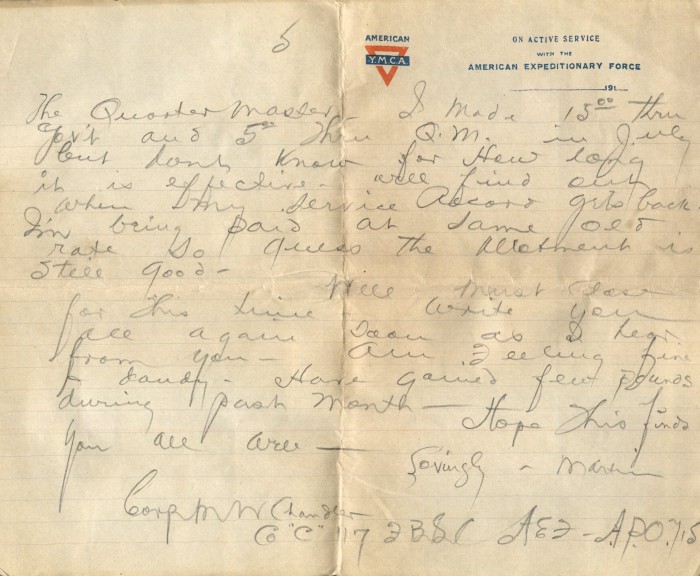 5
AMERICAN
Y.M.C.A.
ON ACTIVE SERVICE
WITH THE
AMERICAN EXPEDITIONARY FORCE
191
The Quarter Master - I made 15.00 thru
Gov't and 5.00 thru Q.M. in July
but dont know for How long
it is effective - will find out
when my service Record gets back.
I'm being paid at same old
rate so guess the Allotment is
still good -
Well must close
for this time write you
all again soon as I hear
from you - Am Feeling fine
& dandy - Have gained few pounds
during past Month -
Hope this finds
you all well -
Lovingly - Marvin
Corp M W Chandler
Co "C" 117 F B S C AEF - A.P.O. 715